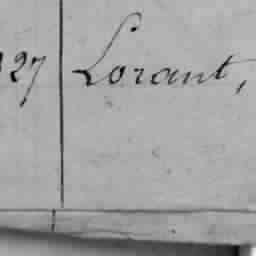 27 Lorant,